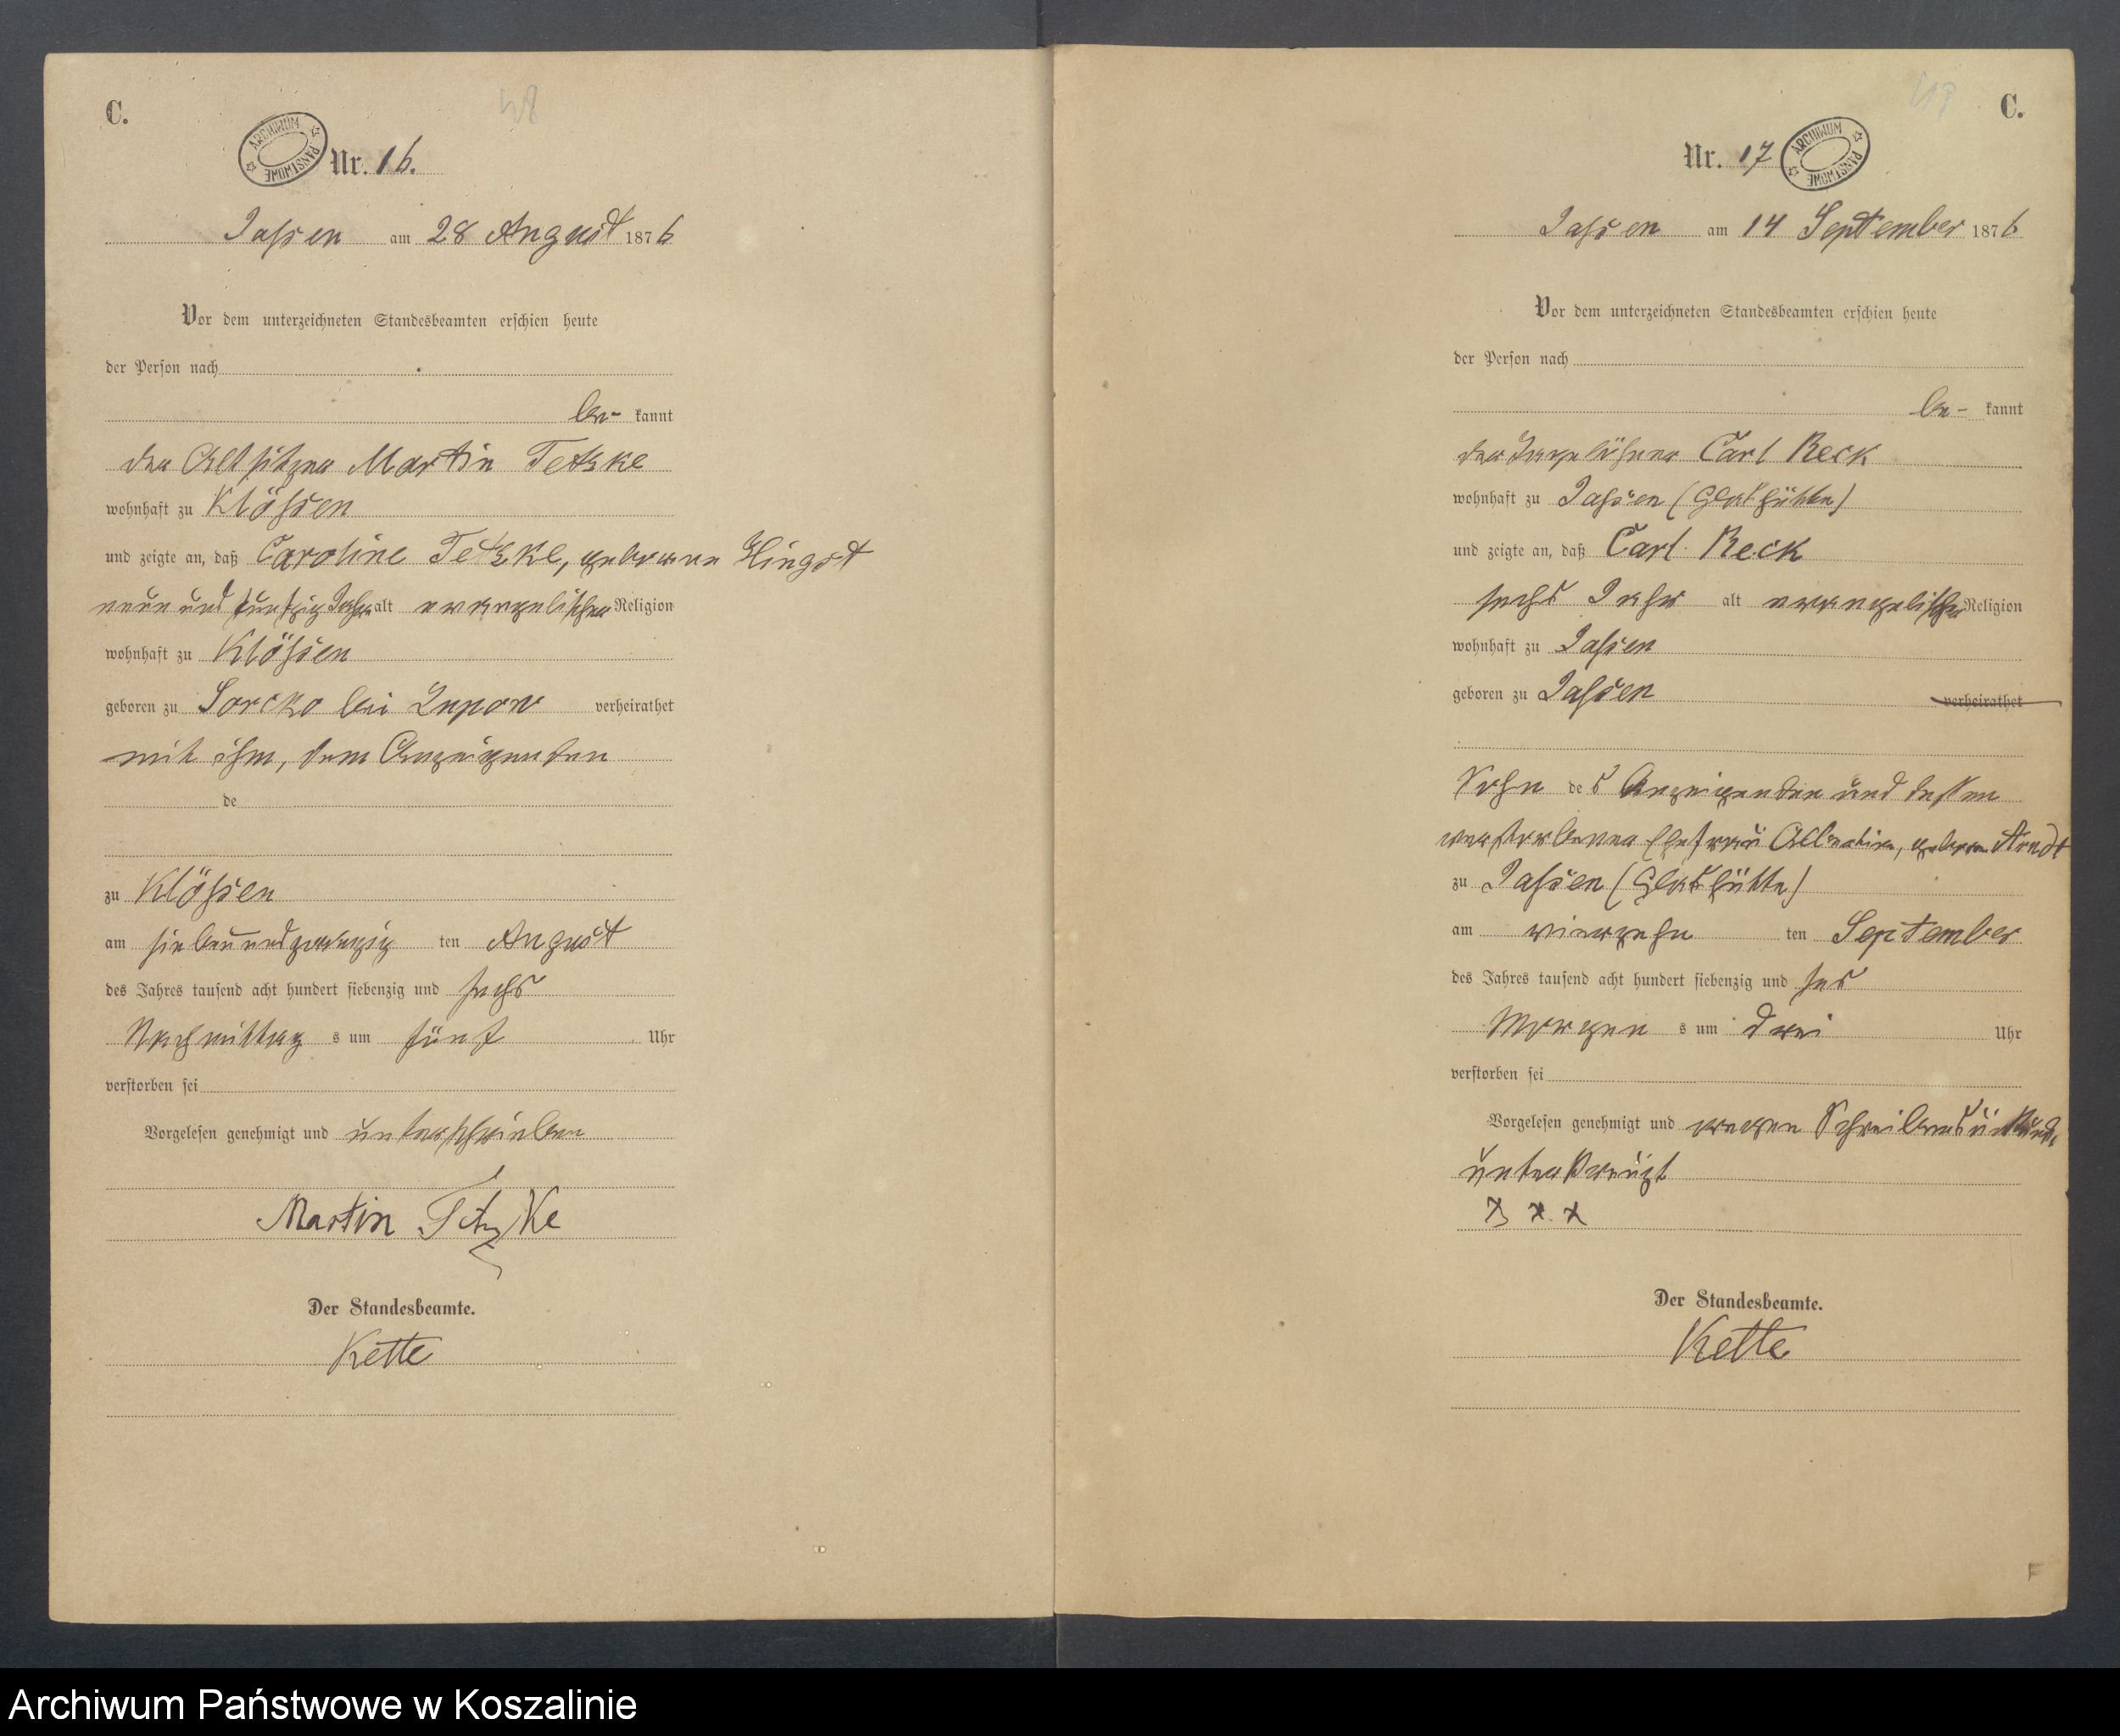 C.
48
ARCHIWUM PAŃSTWOWE
Nr. 16.
Jassen am 28 August 1876
Vor dem unterzeichneten Standesbeamten erschien heute
der Person nach
be- kannt
der Altsitzer Martin Tetzke
wohnhaft zu Klössen
und zeigte an, daß Caroline Tetzke, geborene Hingst
neun und fünfzig Jahr alt evangelischer Religion
wohnhaft zu Klössen
geboren zu bei Lupow verheirathet
mit ihm, dem Anzeigenden
de
zu Klössen
am siebenundzwanzig ten August
des Jahres tausend acht hundert siebenzig und sechs
Nachmittag s um fünf Uhr
verstorben sei
Vorgelesen genehmigt und unterschrieben
Martin Tetzke
Der Standesbeamte.
Kette
C.
49
Nr. 17
ARCHIWUM PAŃSTWOWE
Jassen am 14 September 1876
Vor dem unterzeichneten Standesbeamten erschien heute
der Person nach
be- kannt
der Tagelöhner Carl Reck
wohnhaft zu Jassen (Glashütte)
und zeigte an, daß Carl Reck
sechs Jahr alt evangelischer Religion
wohnhaft zu Jassen
geboren zu Jassen verheirathet
Sohn des Anzeigenden und dessen
verstorbener Ehefrau geboren Arndt
zu Jassen (Glashütte)
am vierzehn ten September
des Jahres tausend acht hundert siebenzig und ses
Morgen s um drei Uhr
verstorben sei
Vorgelesen genehmigt und wegen Schreibensunkunde
unterkreuzt
x x x
Der Standesbeamte.
Kette
F
Archiwum Państwowe w Koszalinie